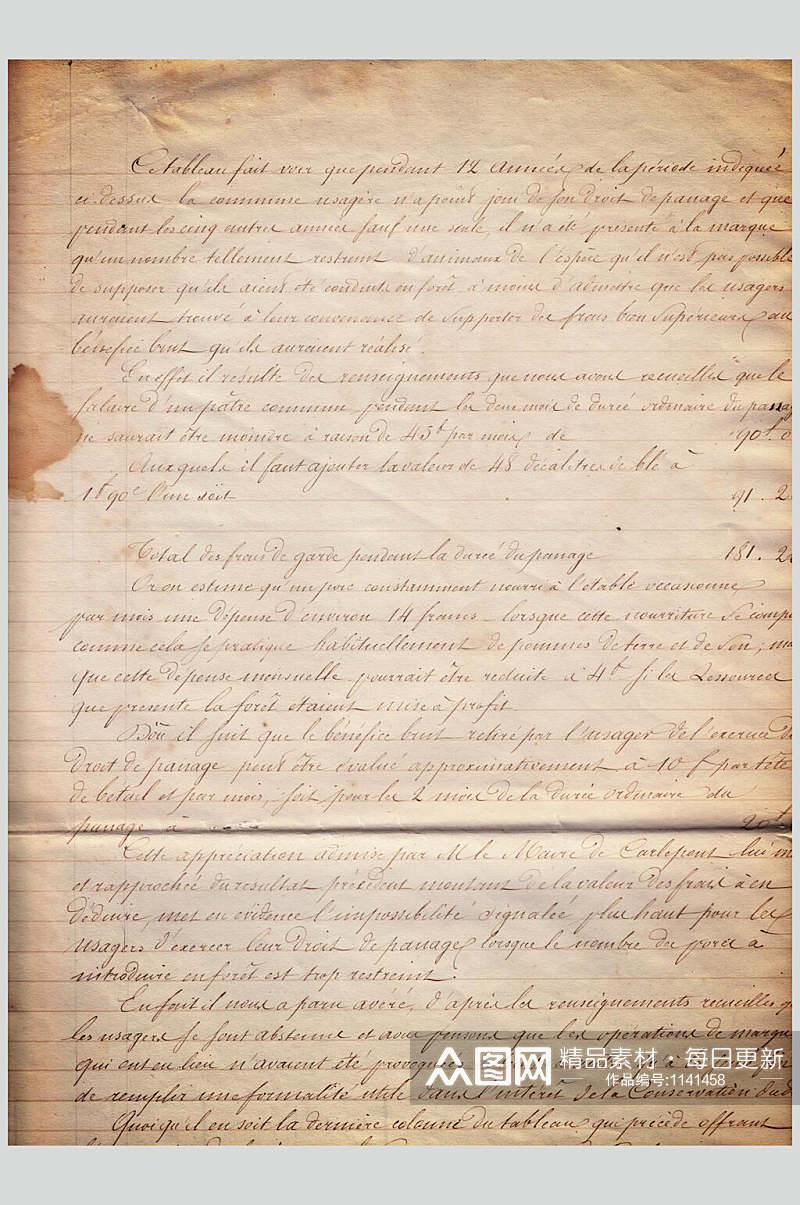 Ce tableau fait voir que pendant 12 années de la période indiquée
ci-dessus la commune usagère n'a point joui de son droit de panage et que
pendant les cinq autres années sauf une seule, il n'a été présenté à la marque
qu'un nombre tellement restreint d'animaux de l'espèce qu'il n'est pas possible
de supposer qu'ils aient été conduits en forêt à moins d'admettre que les usagers
auraient trouvé à leur convenance de supporter des frais bien supérieurs au
bénéfice brut qu'ils auraient réalisé.
En effet il résulte des renseignements que nous avons recueillis que le
salaire d'un pâtre commun pendant les deux mois de durée ordinaire du panag
ne saurait être moindre à raison de 45f par mois de 90f. 0
Auxquels il faut ajouter la valeur de 48 décalitres de blé à
1f 90c l'un soit 91 . 2
Total des frais de garde pendant la durée du panage 181. 2
Or on estime qu'un porc constamment nourri à l'étable occasionne
par mois une dépense d'environ 14 francs lorsque cette nourriture se comp
comme cela se pratique habituellement de pommes de terre et de son; ma
que cette dépense mensuelle pourrait être réduite à 4f si les ressources
que présente la forêt étaient mises à profit
D'où il suit que le bénéfice brut retiré par l'usager de l'exercice d
droit de panage peut être évalué approximativement à 10 f par tête
de bétail et par mois, soit pour les 2 mois de la durée ordinaire du
panage à 20f
Cette appréciation admise par M le Maire de Carlepont lui m
et rapprochée du résultat précédent montant de la valeur des frais à en
déduire, met en évidence l'impossibilité signalée plus haut pour les
usagers d'exercer leur droit de panage lorsque le nombre des porcs à
introduire en forêt est trop restreint.
En fait il nous a paru avéré, d'après les renseignements recueillis q
les usagers se sont abstenus et nous pensons que les opérations de marque
qui ont eu lieu n'avaient été provoquées
de remplir une formalité utile dans l'intérêt de la conservation du d
Quoiqu'il en soit la dernière colonne du tableau qui précède offrant
众图网
精品素材·每日更新
作品编号:1141458